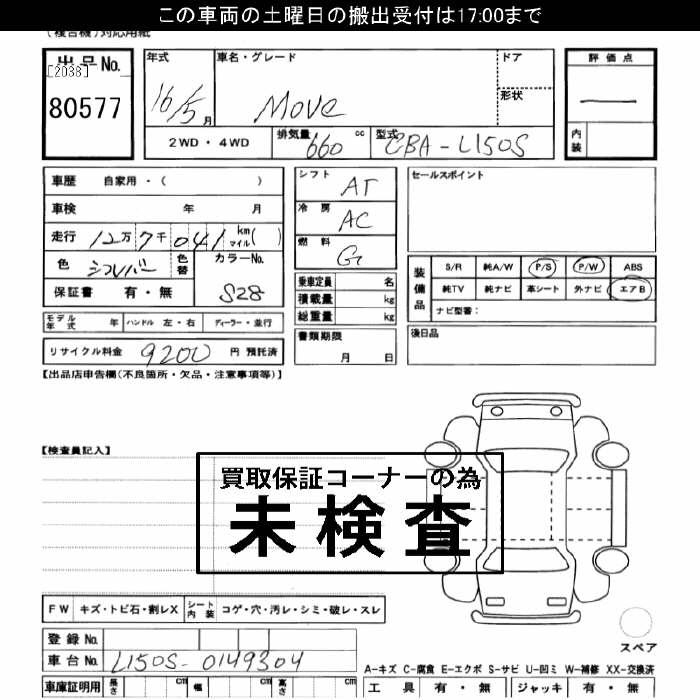 この車両の土曜日の搬出受付は17:00まで
(複合機)対応用紙
出品No.
[2038]
80577
年式
16/5月
車名・グレード
Move
ドア
形状
評価点
—
内装
2WD・4WD
排気量 660 cc
型式 CBA-L150S
車歴 自家用・( )
車検 年 月
走行 12万7千041 km マイル( )
色 シルバー 色替
カラーNo. S28
保証書 有・無
シフト AT
冷房 AC
燃料 G
乗車定員 名
積載量 kg
総重量 kg
セールスポイント
装備品
S/R 純A/W P/S P/W ABS
純TV 純ナビ 革シート 外ナビ エアB
ナビ型番:
モデル年式 年 ハンドル 左・右 ディーラー・並行
リサイクル料金 9200 円 預託済
書類期限
月 日
後日品
【出品店申告欄(不良箇所・欠品・注意事項等)】
【検査員記入】
買取保証コーナーの為
未検査
FW キズ・トビ石・割レX シート内装 コゲ・穴・汚レ・シミ・破レ・スレ
登録No.
車台No. L150S-0149304
スペア
A-キズ C-腐食 E-エクボ S-サビ U-凹ミ W-補修 XX-交換済
車庫証明用 長さ cm 幅 cm 高さ cm
工具 有・無 ジャッキ 有・無